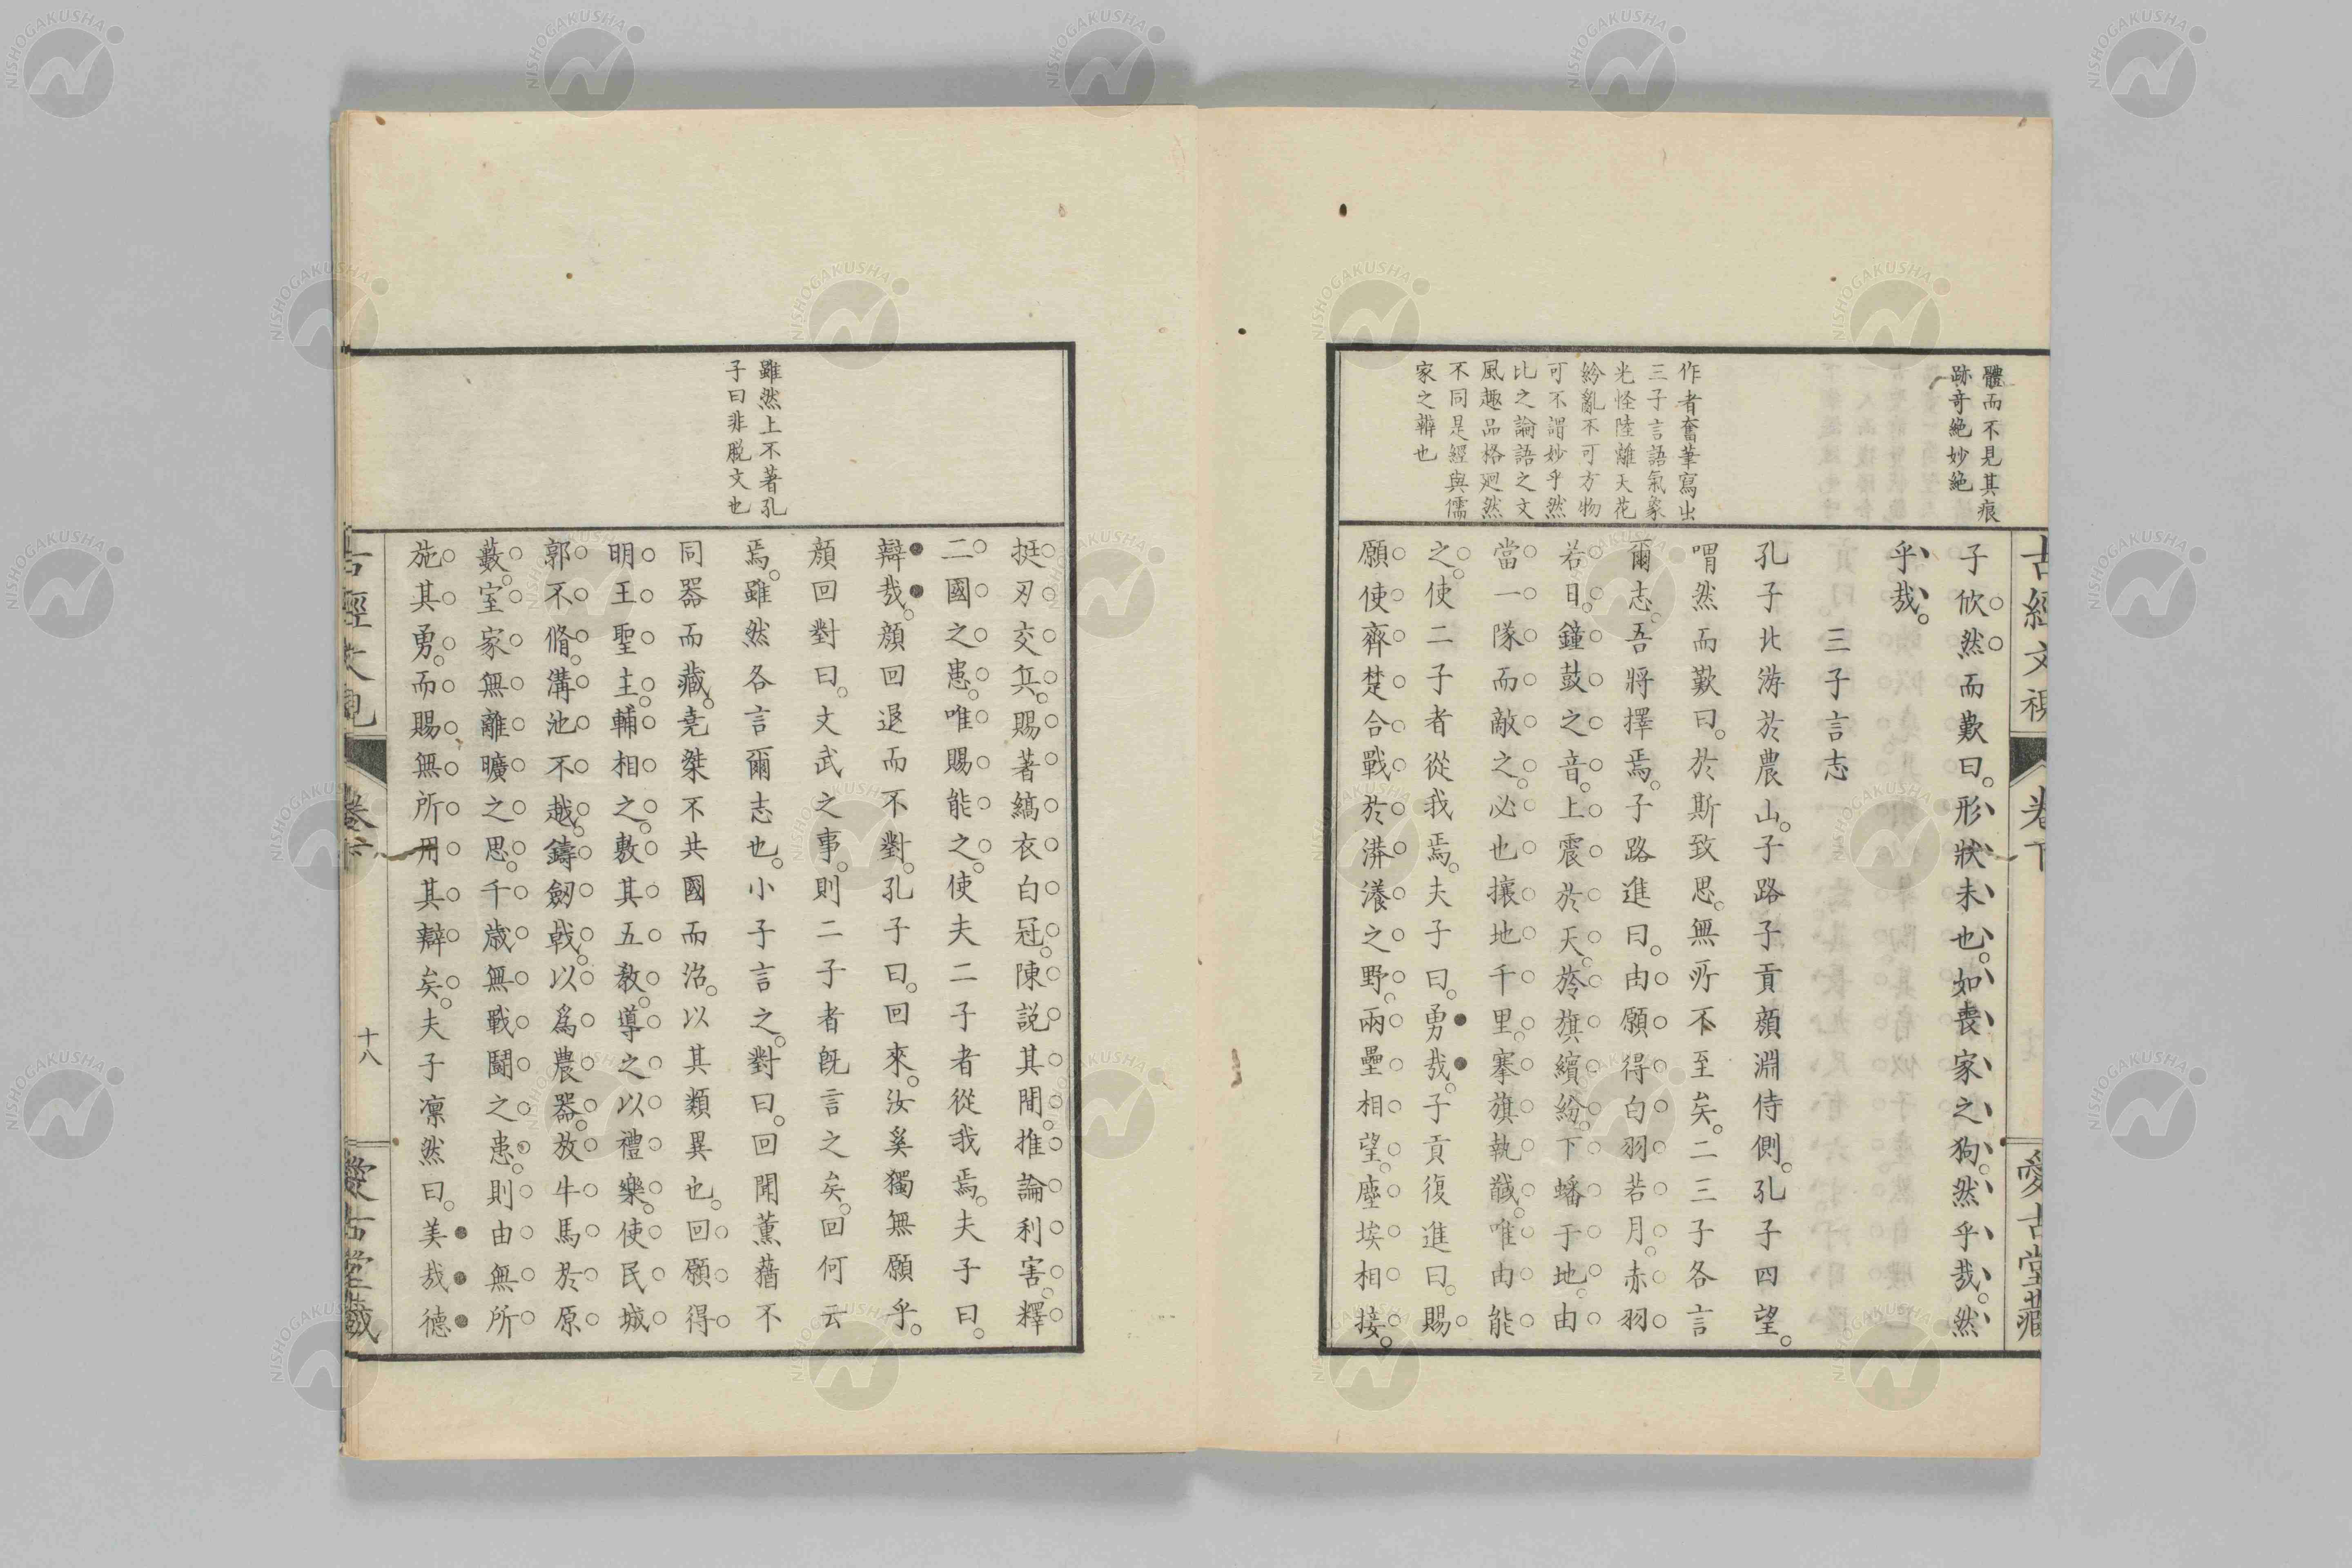 體而不見其痕
跡奇絶妙絶
作者奮筆寫出
三子言語氣象
光怪陸離天花
紛亂不可方物
可不謂妙乎然
比之論語之文
風趣品格迥然
不同是經與儒
家之辨也
古經文視
卷下
愛古堂藏
子欣然而歎曰。形狀未也。如喪家之狗。然乎哉。然
乎哉。
三子言志
孔子北游於農山。子路子貢顏淵侍側。孔子四望。
喟然而歎曰。於斯致思。無所不至矣。二三子各言
爾志。吾將擇焉。子路進曰。由願得白羽若月。赤羽
若日。鐘鼓之音。上震於天。旍旗繽紛。下蟠于地。由
當一隊而敵之。必也攘地千里。搴旗執馘。唯由能
之。使二子者從我焉。夫子曰。勇哉。子貢復進曰。賜
願使齊楚合戰於漭瀁之野。兩壘相望。塵埃相接。
雖然上不著孔
子曰非脫文也
挺刃交兵。賜著縞衣白冠。陳説其間。推論利害。釋
二國之患。唯賜能之。使夫二子者從我焉。夫子曰。
辯哉。顔回退而不對。孔子曰。回來。汝奚獨無願乎。
顔回對曰。文武之事。則二子者既言之矣。回何云
焉。雖然各言爾志也。小子言之。對曰。回聞薰蕕不
同器而藏。堯桀不共國而治。以其類異也。回願得
明王聖主。輔相之。敷其五教。導之以禮樂。使民城
郭不脩。溝池不越。鑄劒戟。以爲農器。放牛馬於原
藪。室家無離曠之思。千歲無戰鬪之患。則由無所
施其勇。而賜無所用其辯矣。夫子凛然曰。美哉德
十八
NISHOGAKUSHA